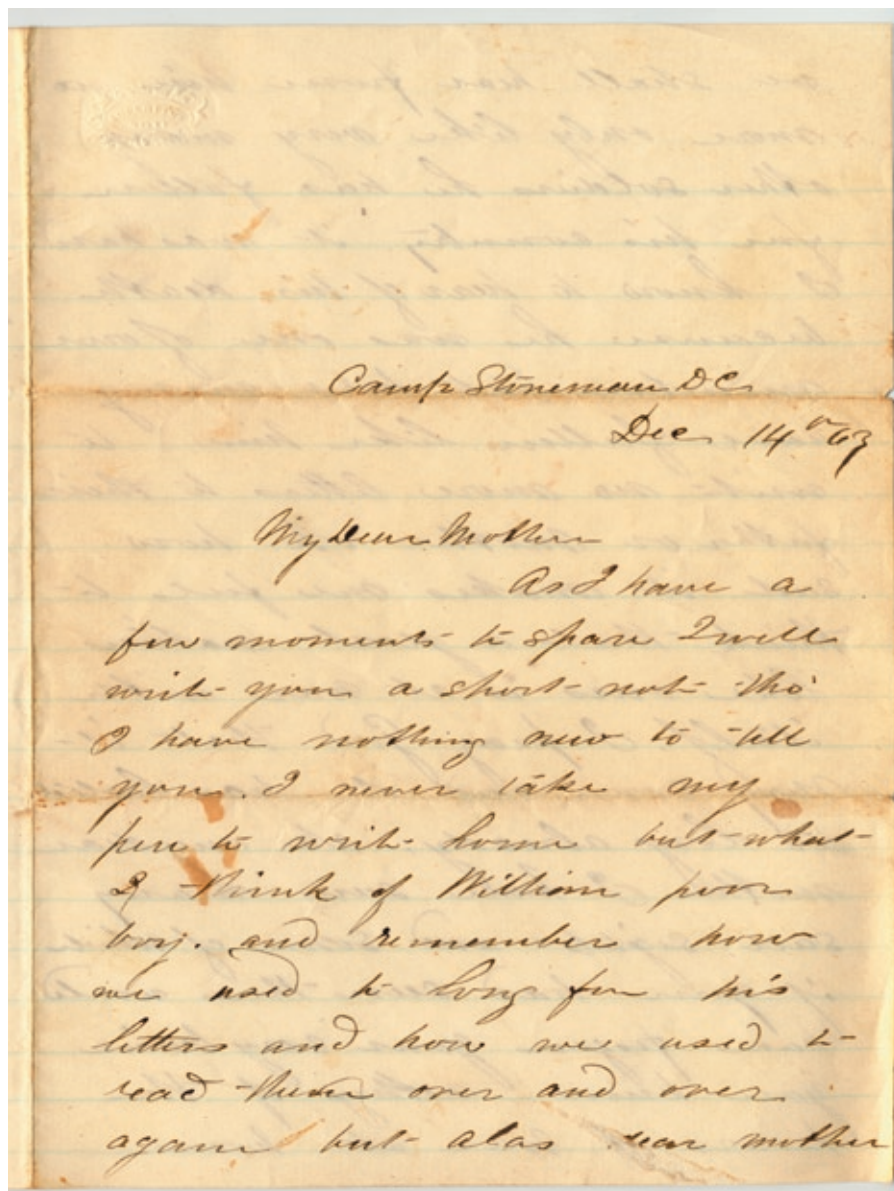 Camp Stoneman D C
Dec 14th 63
My Dear Mother
As I have a
few moments to spare I will
write you a short note tho'
I have nothing new to tell
you. I never take my
pen to write home but what
I think of William poor
boy. and remember how
we used to long for his
letters and how we used to
read them over and over
again but alas dear mother